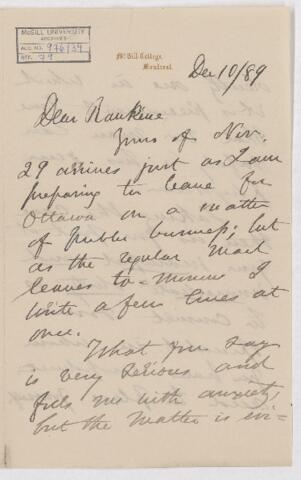 McGILL UNIVERSITY
ARCHIVES
ACC. NO. 976/39
REF. 77
McGill College,
Montreal.
Dec 10/89
Dear Rankine
Yours of Nov.
29 arrives just as I am
preparing to leave for
Ottawa on a matter
of public business; but
as the regular mail
leaves to-morrow I
write a few lines at
once.
What you say
is very serious and
fills me with anxiety,
but the matter is evi-